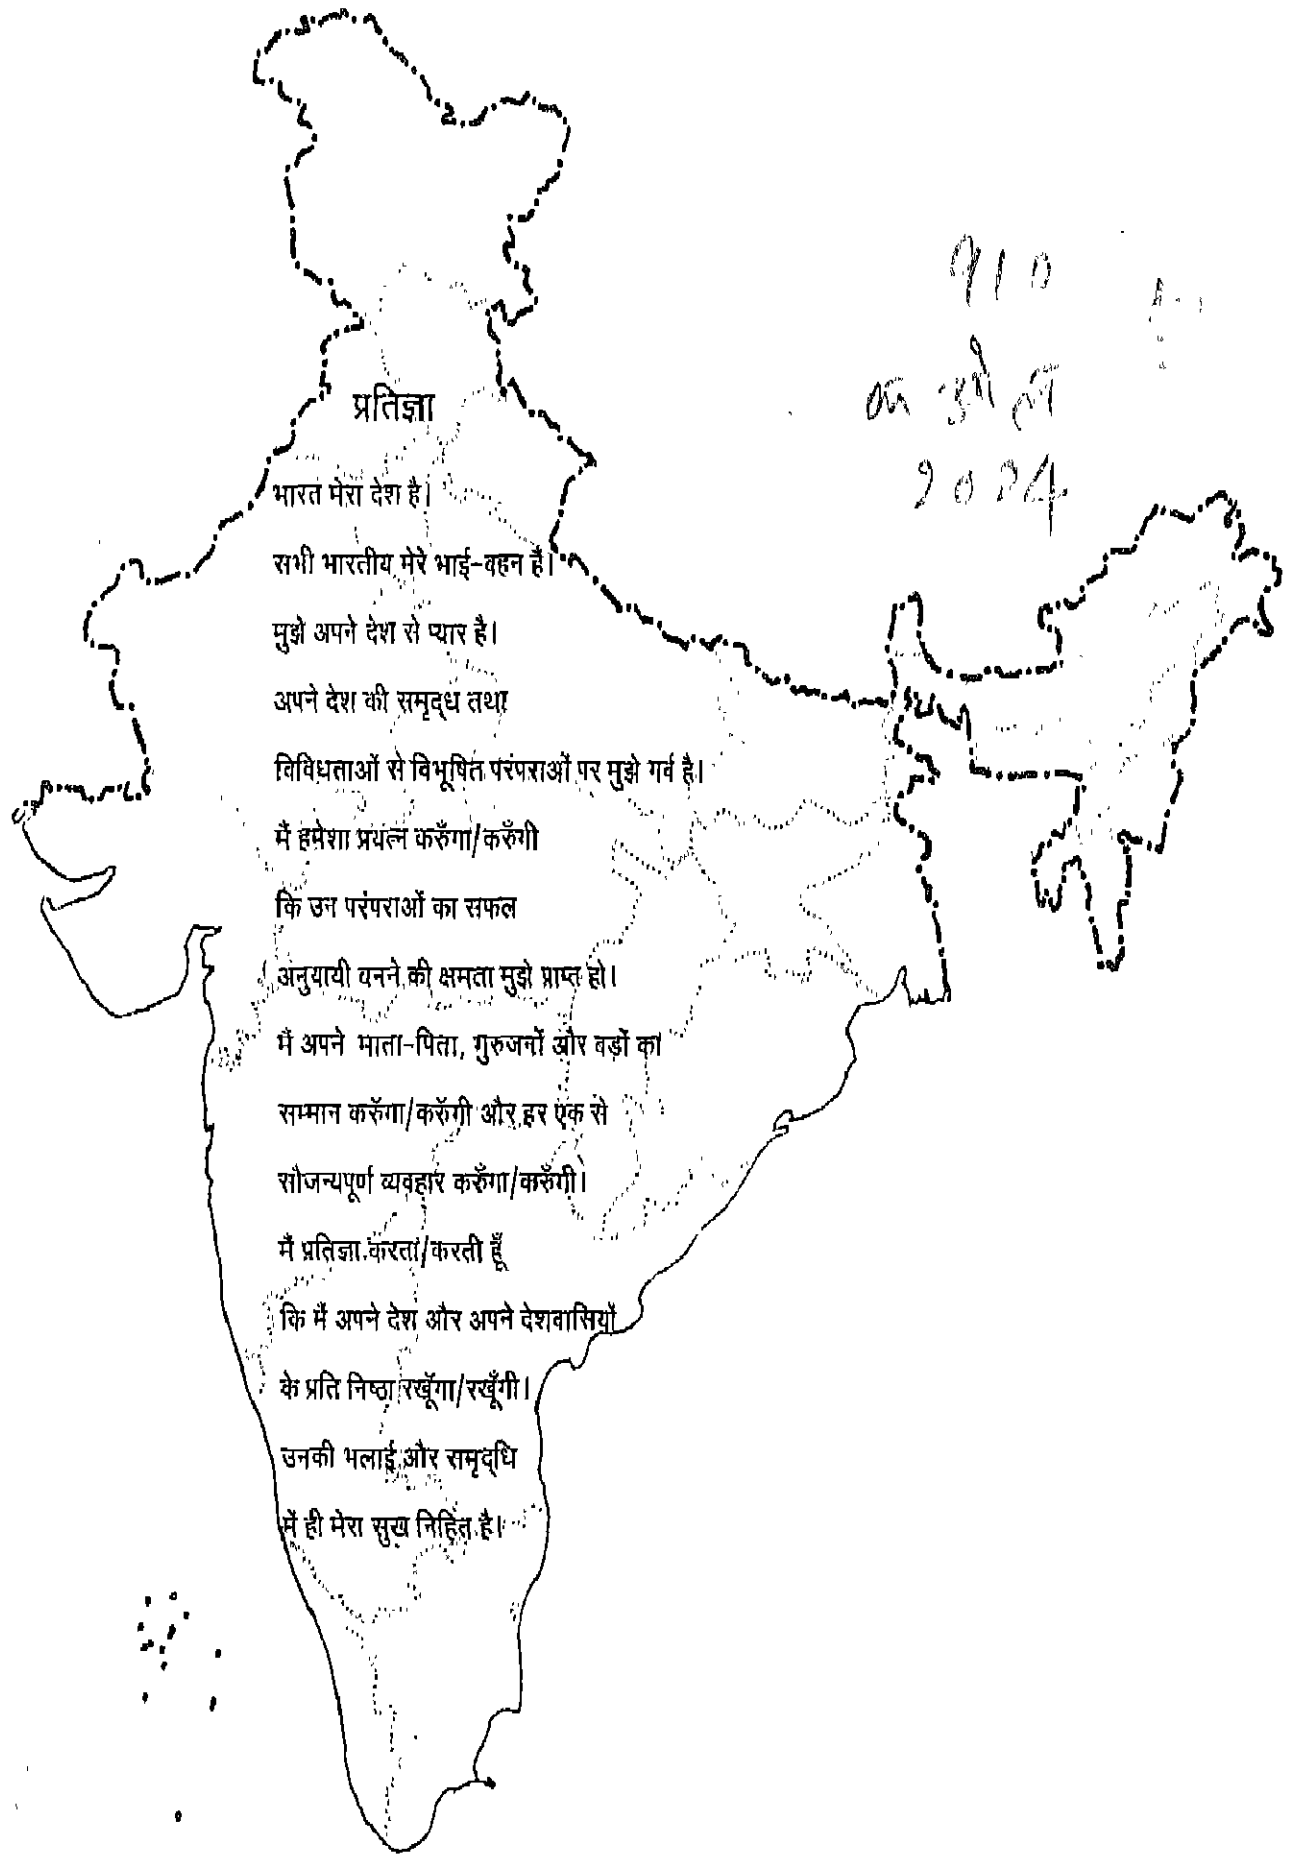 प्रतिज्ञा
भारत मेरा देश है।
सभी भारतीय मेरे भाई-बहन हैं।
मुझे अपने देश से प्यार है।
अपने देश की समृद्ध तथा
विविधताओं से विभूषित परंपराओं पर मुझे गर्व है।
मैं हमेशा प्रयत्न करुँगा/करुँगी
कि उन परंपराओं का सफल
अनुयायी बनने की क्षमता मुझे प्राप्त हो।
मैं अपने माता-पिता, गुरुजनों और बड़ों का
सम्मान करुँगा/करुँगी और हर एक से
सौजन्यपूर्ण व्यवहार करुँगा/करुँगी।
मैं प्रतिज्ञा करता/करती हूँ
कि मैं अपने देश और अपने देशवासियों
के प्रति निष्ठा रखूँगा/रखूँगी।
उनकी भलाई और समृद्धि
में ही मेरा सुख निहित है।